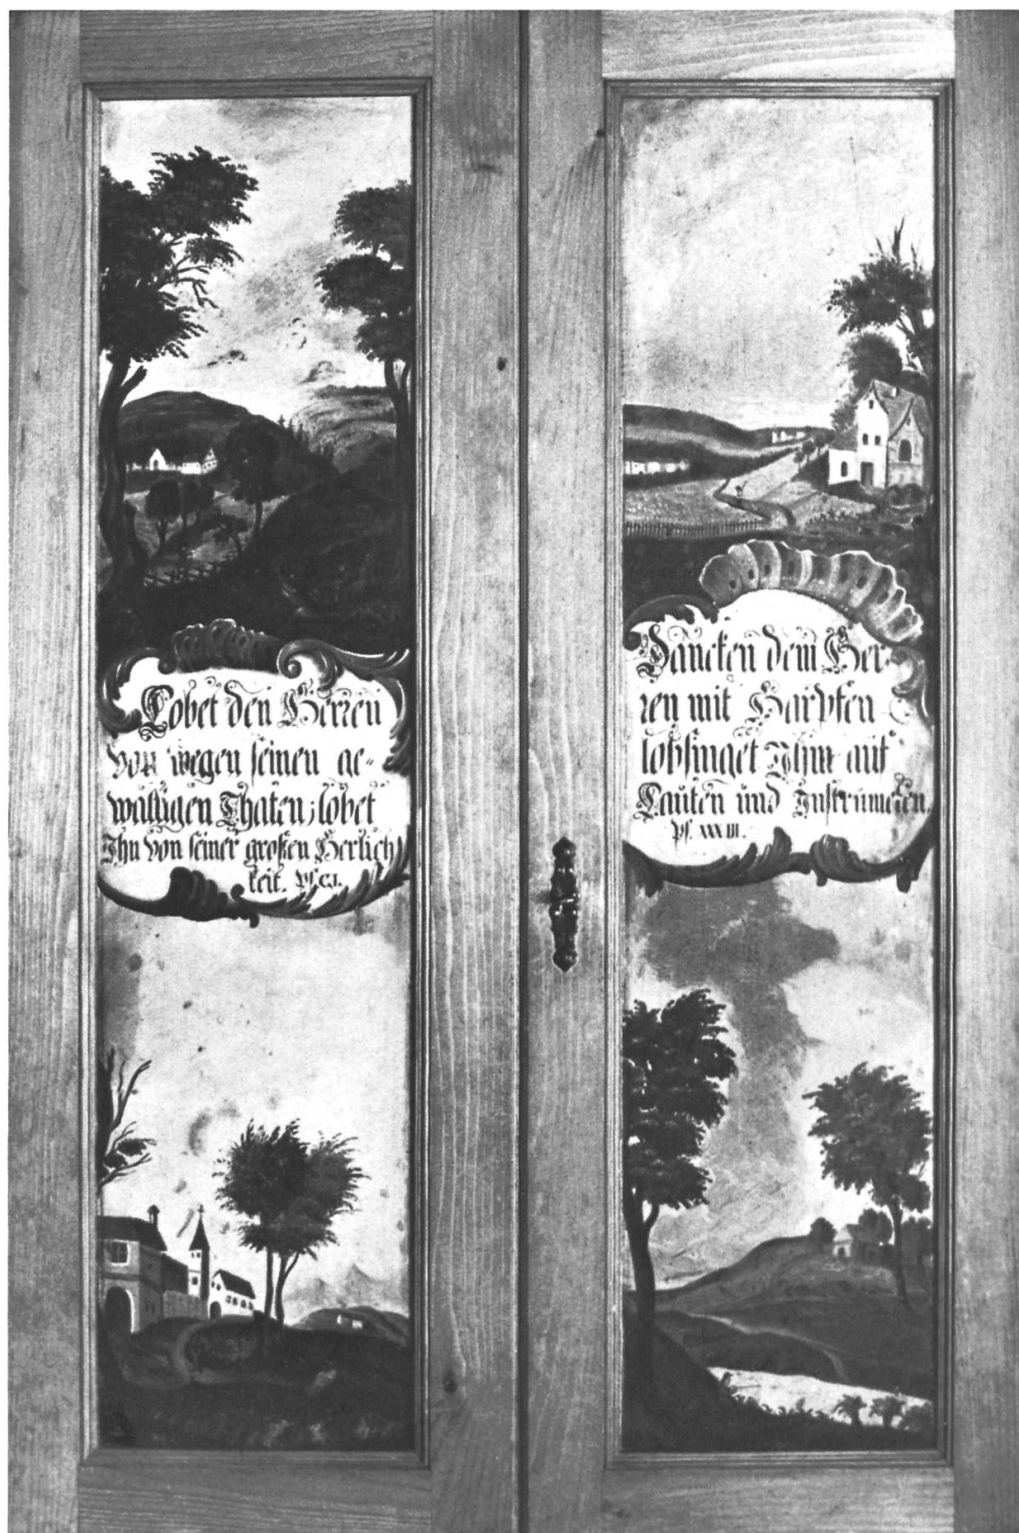 Lobet den Herren
von wegen seinen ge-
waltigen Thaten, lobet
Ihn von seiner großen Herlich
keit. Ps. CL.
Dancken dem Her-
ren mit Harpfen
lobsinget Ihm auf
Lauten und Instrumenten.
Ps. XXXIII.